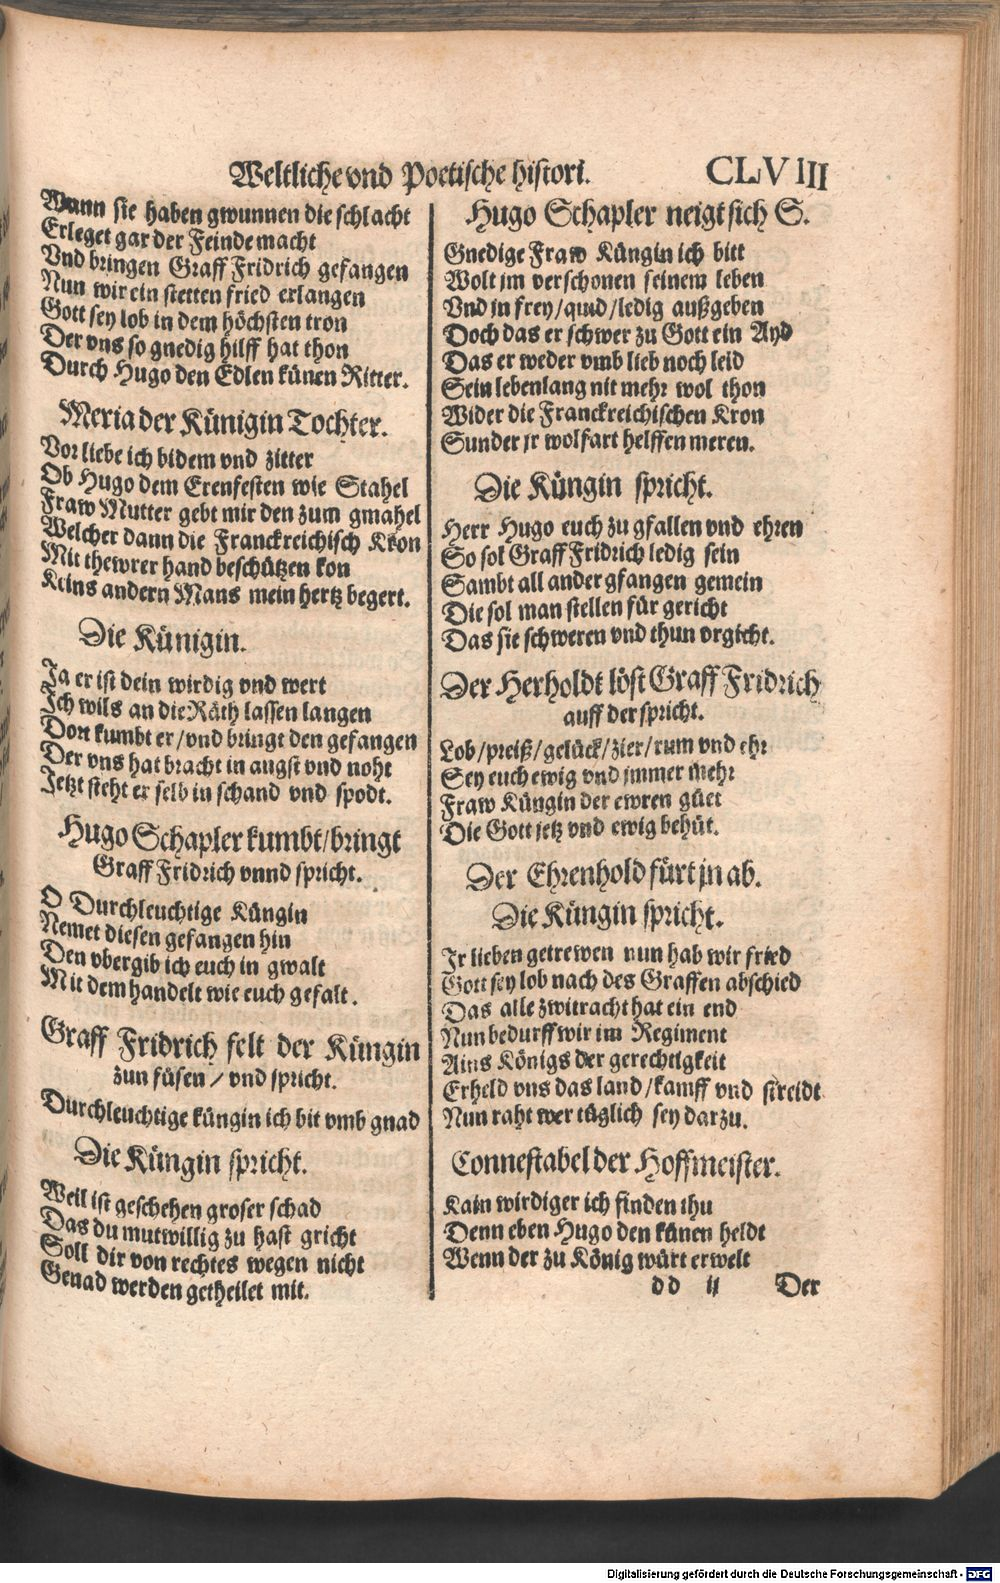 Weltliche vnd Poetische histori. CLVIII
Wann sie haben gwunnen die schlacht
Erleget gar der Feinde macht
Vnd bringen Graff Fridrich gefangen
Nun wir ein stetten fried erlangen
Gott sey lob in dem höchsten tron
Der vns so gnedig hilff hat thon
Durch Hugo den Edlen künen Ritter.
Meria der Künigin Tochter.
Vor liebe ich bidem vnd zitter
Ob Hugo dem Erenfesten wie Stahel
Fraw Mutter gebt mir den zum gmahel
Welcher dann die Franckreichisch Kron
Mit thewrer hand beschützen kon
Keins andern Mans mein hertz begert.
Die Künigin.
Ja er ist dein wirdig vnd wert
Ich wils an die Räth lassen langen
Dort kumbt er/vnd bringt den gefangen
Der vns hat bracht in angst vnd noht
Jetzt steht er selb in schand vnd spodt.
Hugo Schapler kumbt/bringt
Graff Fridrich vnnd spricht.
O Durchleuchtige Küngin
Nemet diesen gefangen hin
Den vbergib ich euch in gwalt
Mit dem handelt wie euch gefalt.
Graff Fridrich felt der Küngin
zun füsen/vnd spricht.
Durchleuchtige küngin ich bit vmb gnad
Die Küngin spricht.
Weil ist geschehen groser schad
Das du mutwillig zu hast gricht
Soll dir von rechtes wegen nicht
Genad werden getheilet mit.
Hugo Schapler neigt sich S.
Gnedige Fraw Küngin ich bitt
Wolt jm verschonen seinem leben
Vnd jn frey/quid/ledig außgeben
Doch das er schwer zu Gott ein Ayd
Das er weder vmb lieb noch leid
Sein lebenlang nit mehr wol thon
Wider die Franckreichischen Kron
Sunder jr wolfart helffen meren.
Die Küngin spricht.
Herr Hugo euch zu gfallen vnd ehren
So sol Graff Fridrich ledig sein
Sambt all ander gfangen gemein
Die sol man stellen für gericht
Das sie schweren vnd thun vrgicht.
Der Herholdt löst Graff Fridrich
auff der spricht.
Lob/preiß/gelück/zier/rum vnd ehr
Sey euch ewig vnd jmmer mehr
Fraw Küngin der ewren güet
Die Gott jetz vnd ewig behüt.
Der Ehrenhold fürt jn ab.
Die Küngin spricht.
Ir lieben getrewen nun hab wir fried
Gott sey lob nach des Graffen abschied
Das alle zwitracht hat ein end
Nun bedurff wir im Regiment
Ains Königs der gerechtigkeit
Erheld vns das land/kamff vnd streidt
Nun raht wer tüglich sey darzu.
Connestabel der Hoffmeister.
Kain wirdiger ich finden thu
Denn eben Hugo den künen heldt
Wenn der zu König würt erwelt
dd ij Der
Digitalisierung gefördert durch die Deutsche Forschungsgemeinschaft - DFG